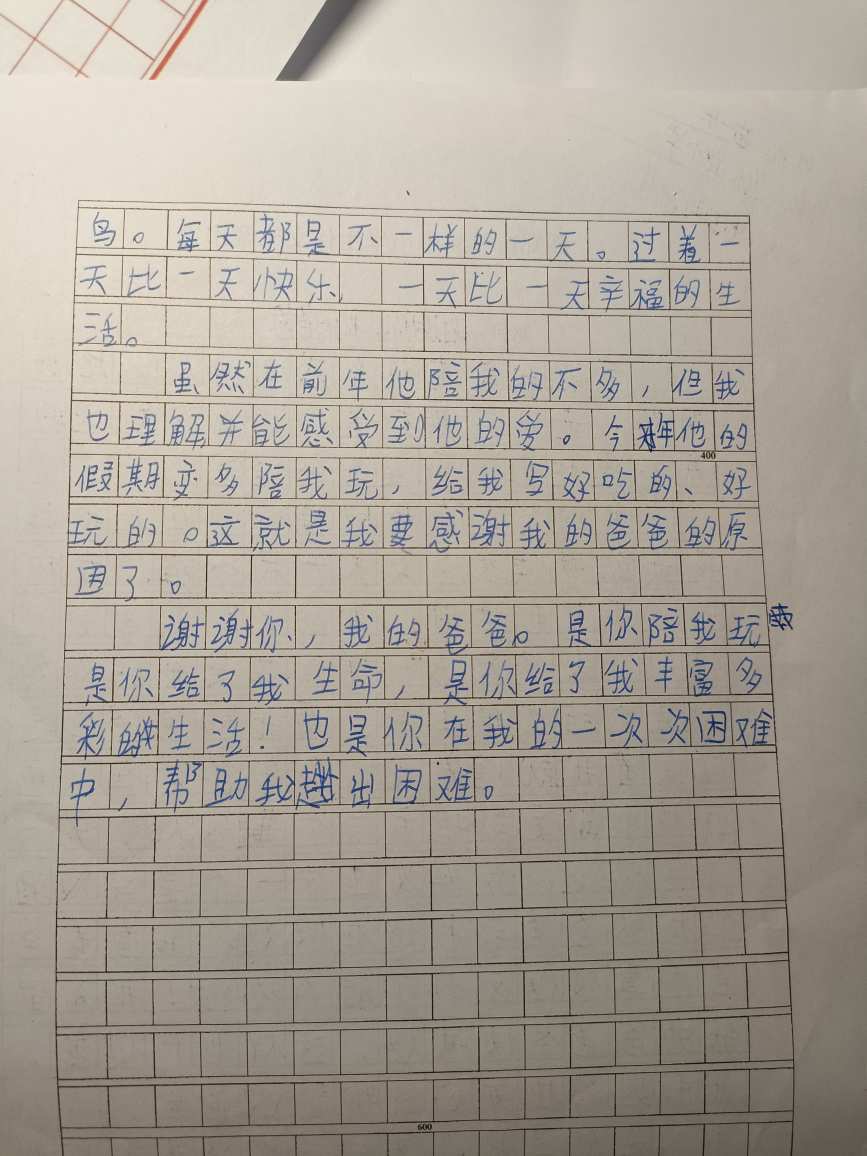 鸟。每天都是不一样的一天。过着一
天比一天快乐，一天比一天辛福的生
活。
虽然在前年他陪我的不多，但我
也理解并能感受到他的爱。今年他的
400
假期变多陪我玩，给我写好吃的、好
玩的。这就是我要感谢我的爸爸的原
因了。
谢谢你，我的爸爸。是你陪我玩
是你给了我生命，是你给了我丰富多
彩的生活！也是你在我的一次次困难
中，帮助我出困难。
600